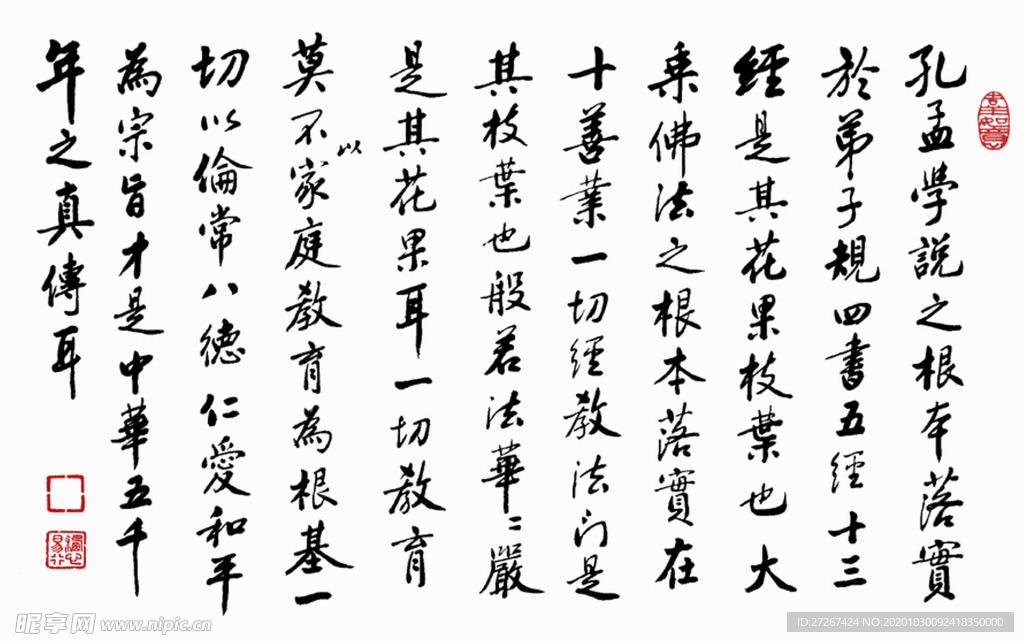 孔孟學說之根本落實
於弟子規四書五經十三
經是其花果枝葉也大
乘佛法之根本落實在
十善業一切經教法门是
其枝葉也般若法華〻嚴
是其花果耳一切教育
莫不以家庭教育為根基一
切以倫常八德仁愛和平
為宗旨才是中華五千
年之真傳耳
昵享网 www.nipic.cn
ID:27267424 NO:20201030092418350000